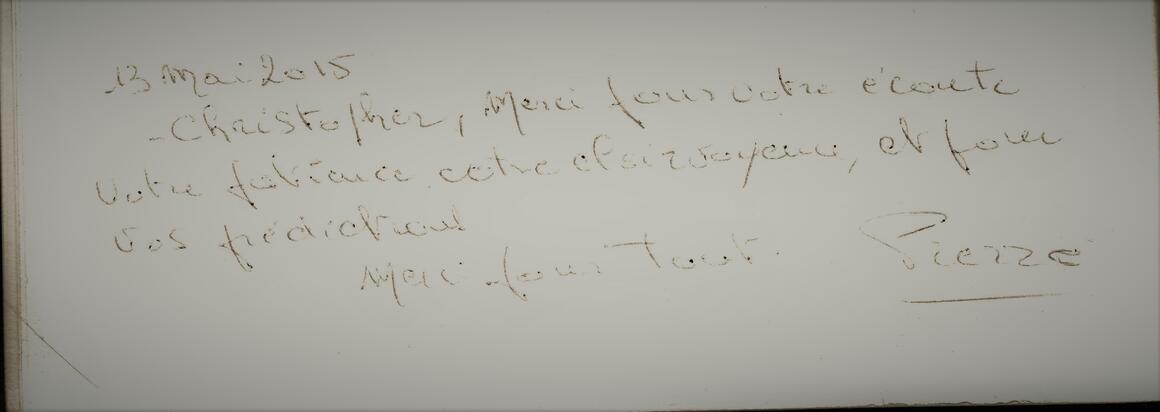 13 Mai 2015
- Christopher, Merci pour votre écoute
Votre patience votre clairvoyance, et pour
vos prédictions
Merci pour Tout. Pierre